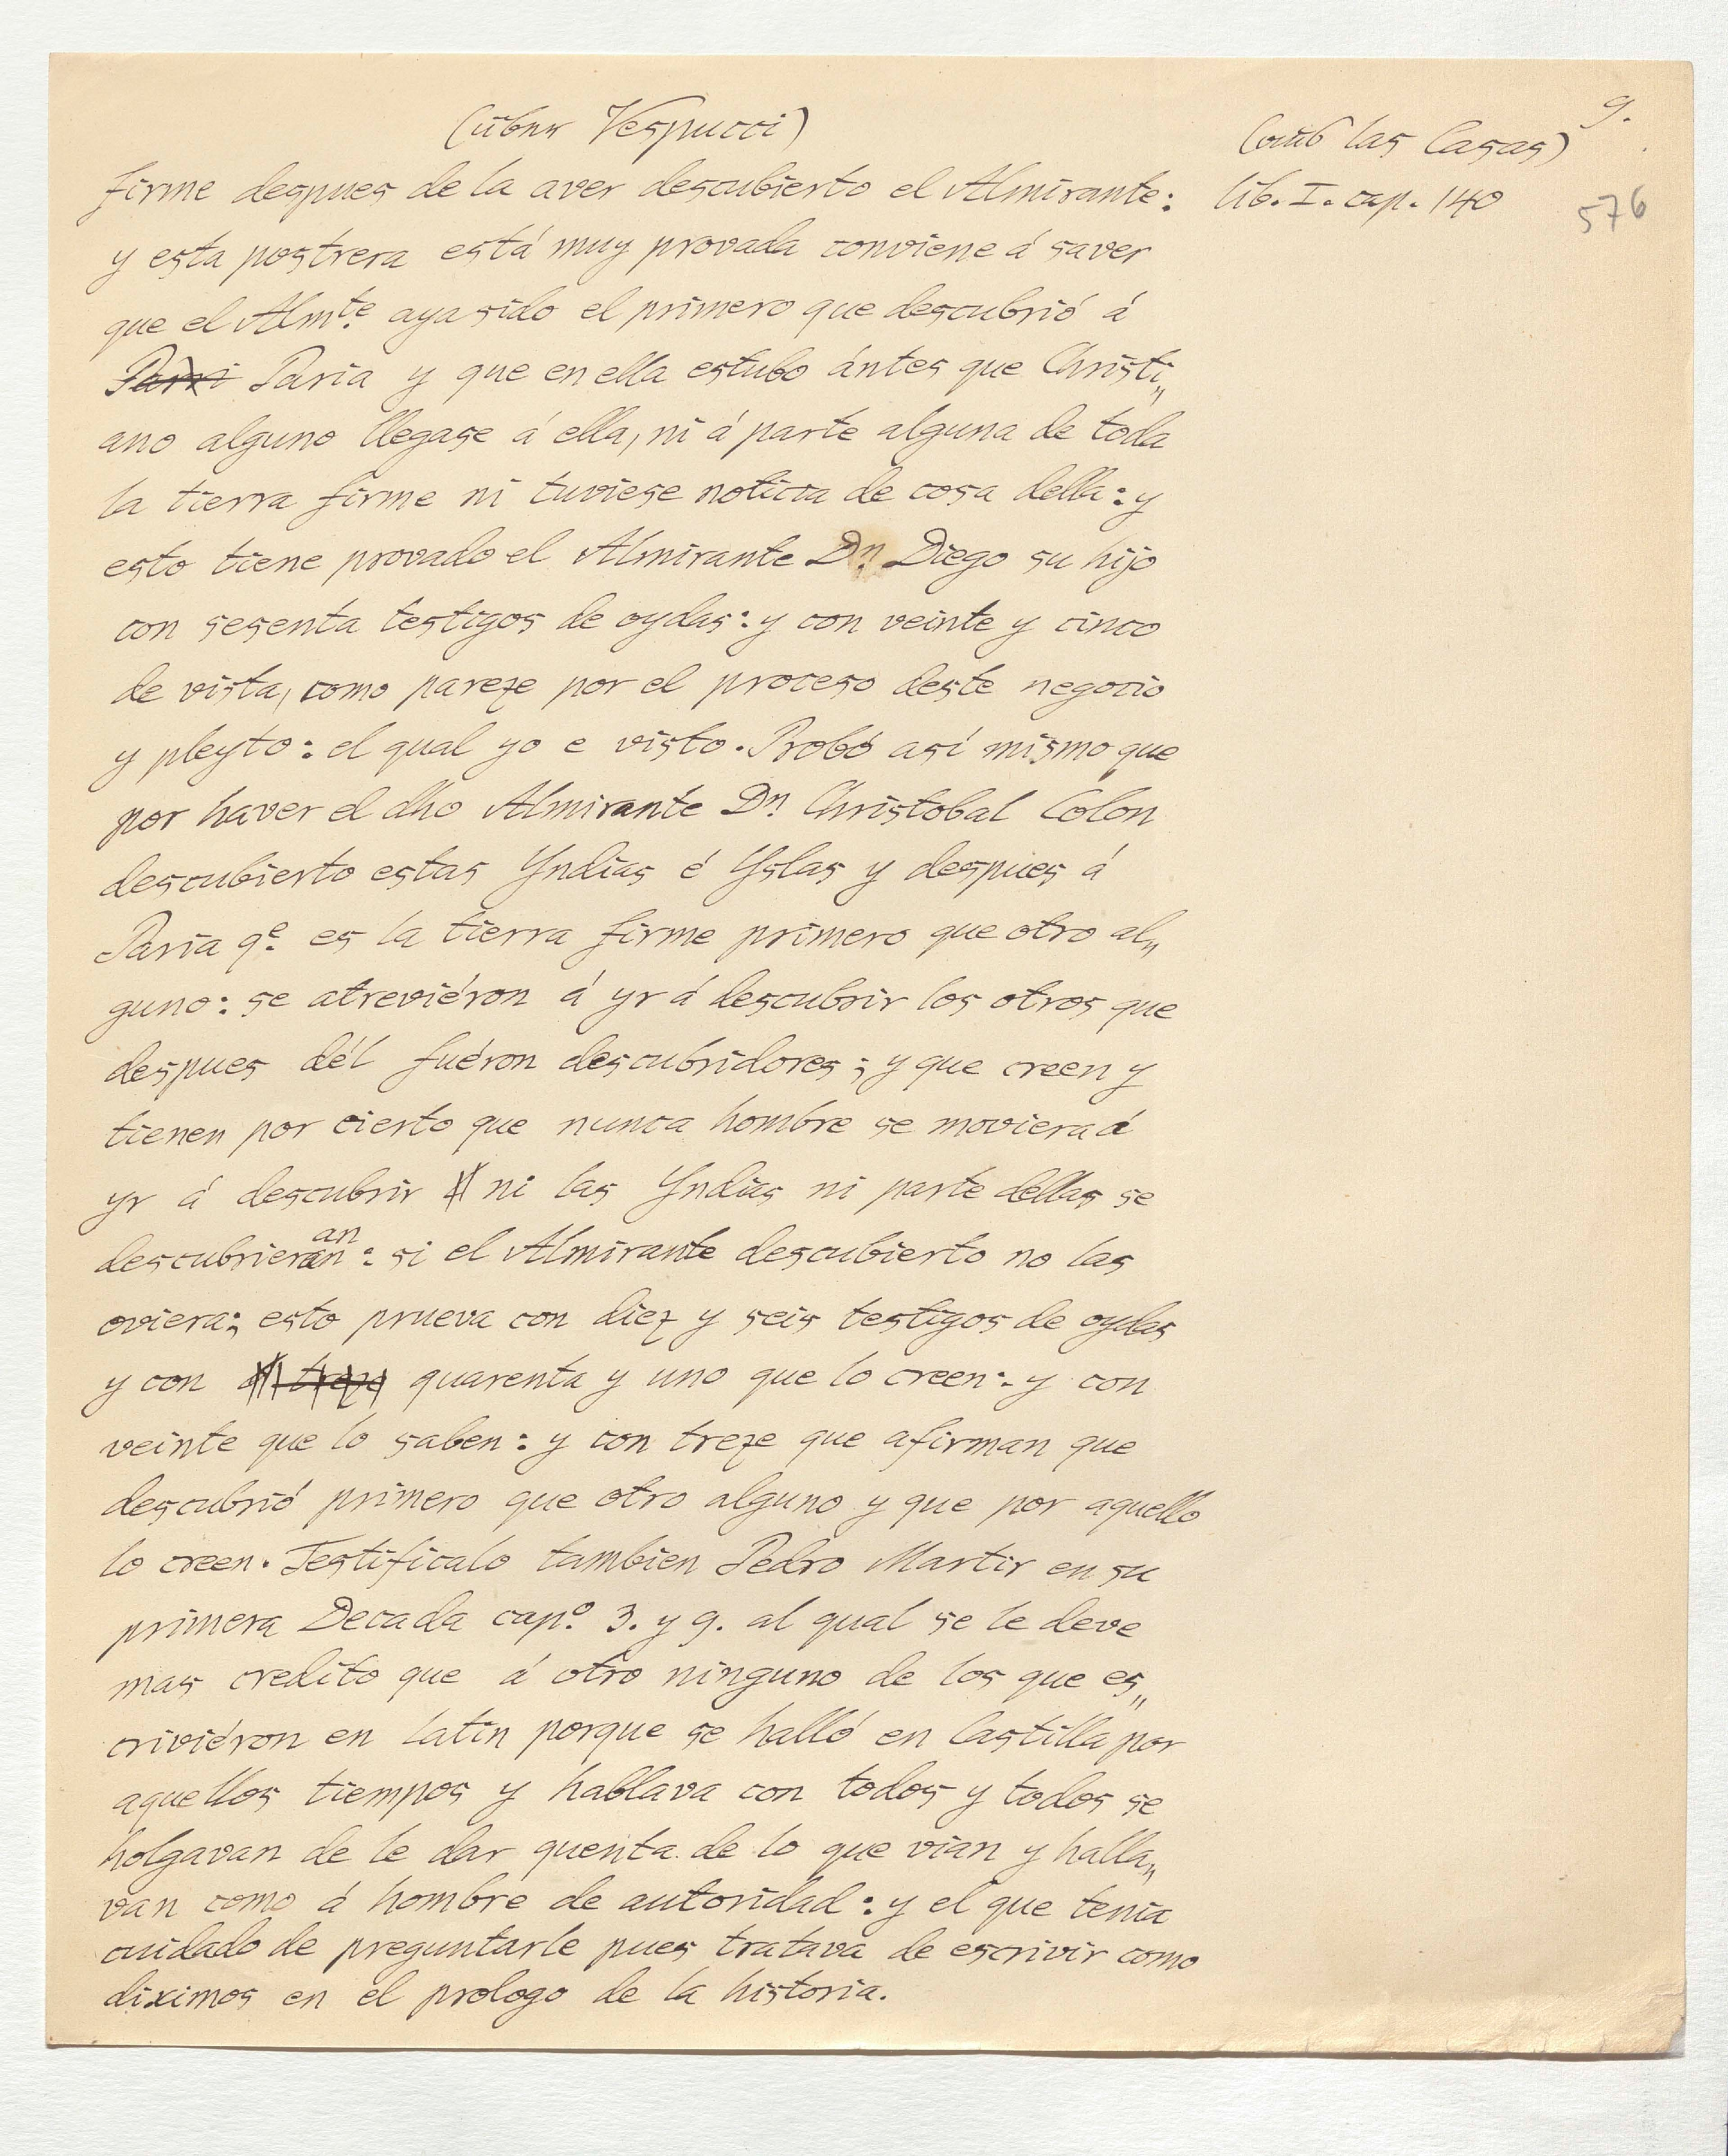 9.
(über Vespucci)
(aus las Casas)
lib. I. cap. 140
576
firme despues de la aver descubierto el Almirante:
y esta postrera está muy provada conviene á saver
que el Almte. aya sido el primero que descubrió á
Pari Paria y que en ella estubo ántes que Christi„
ano alguno llegase á ella, ni á parte alguna de toda
la tierra firme ni tuviese noticia de cosa della: y
esto tiene provado el Almirante Dn. Diego su hijo
con sesenta testigos de oydas: y con veinte y cinco
de vista, como pareze por el proceso deste negocio
y pleyto: el qual yo e visto. Probó así mismo que
por haver el dho Almirante Dn. Christobal Colon
descubierto estas Yndias é Yslas y despues á
Paria qe. es la tierra firme primero que otro al„
guno: se atreviéron á yr á descubrir los otros que
despues dél fuéron descubridores; y que creen y
tienen por cierto que nunca hombre se moviera á
yr á descubrir ni las Yndias ni parte dellas se
descubrieran an: si el Almirante descubierto no las
oviera; esto prueva con diez y seis testigos de oydas
y con treze quarenta y uno que lo creen: y con
veinte que lo saben: y con treze que afirman que
descubrió primero que otro alguno y que por aquello
lo creen. Testificalo tambien Pedro Martir en su
primera Decada capo. 3. y 9. al qual se le deve
mas credito que á otro ninguno de los que es„
criviéron en latin porque se halló en Castilla por
aquellos tiempos y hablava con todos y todos se
holgavan de le dar quenta de lo que vian y halla„
van como á hombre de autoridad: y el que tenia
cuidado de preguntarle pues tratava de escrivir como
diximos en el prologo de la historia.